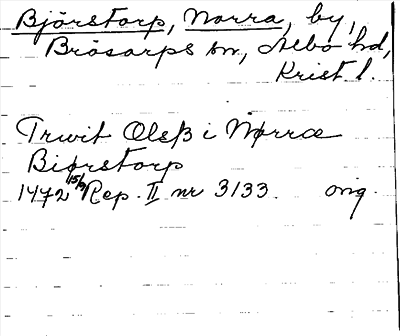 Björstorp, Norra, by,
Brösarps sn, Albo hd,
Krist. l.
Trwit Olsß i Nørræ
Biørstorp
1472 15/9 Rep. II nr 3133. orig.